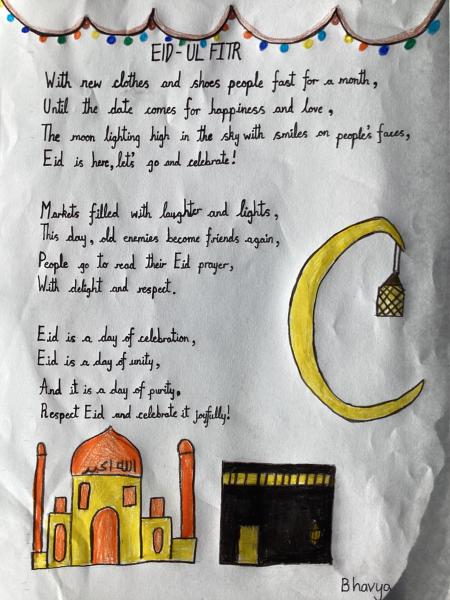 EID-UL FITR
With new clothes and shoes people fast for a month,
Until the date comes for happiness and love,
The moon lighting high in the sky with smiles on people's faces,
Eid is here, let's go and celebrate!
Markets filled with laughter and lights,
This day, old enemies become friends again,
People go to read their Eid prayer,
With delight and respect.
Eid is a day of celebration,
Eid is a day of unity,
And it is a day of purity.
Respect Eid and celebrate it joyfully!
الله اكبر
Bhavya